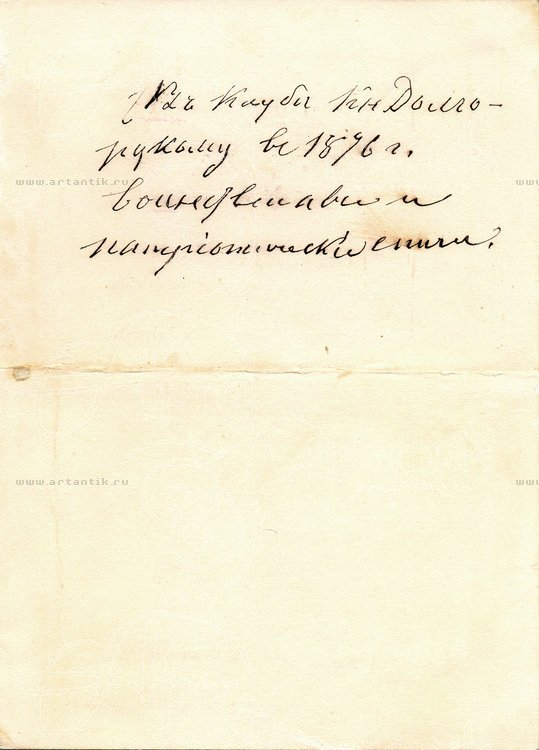 Въ клубѣ Кн Долго-
рукому въ 1876 г.
воинственные и
патріотическіе стихи.
www.artantik.ru www.artantik.ru
www.artantik.ru www.artantik.ru